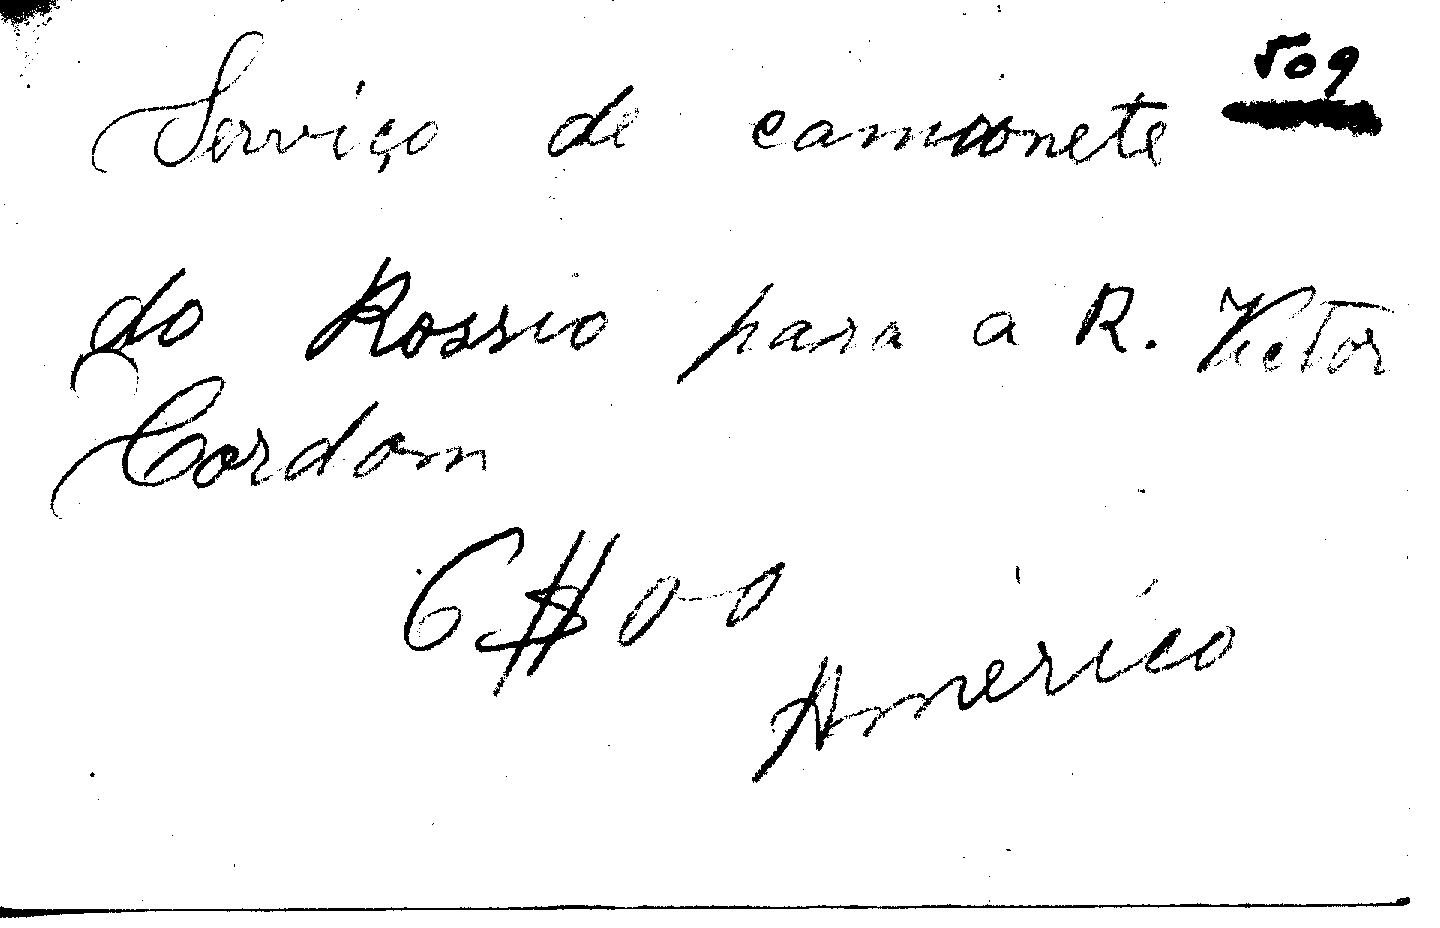 509
Serviço de camionete
do Rossio para a R. Victor
Cordom
6$00
Américo